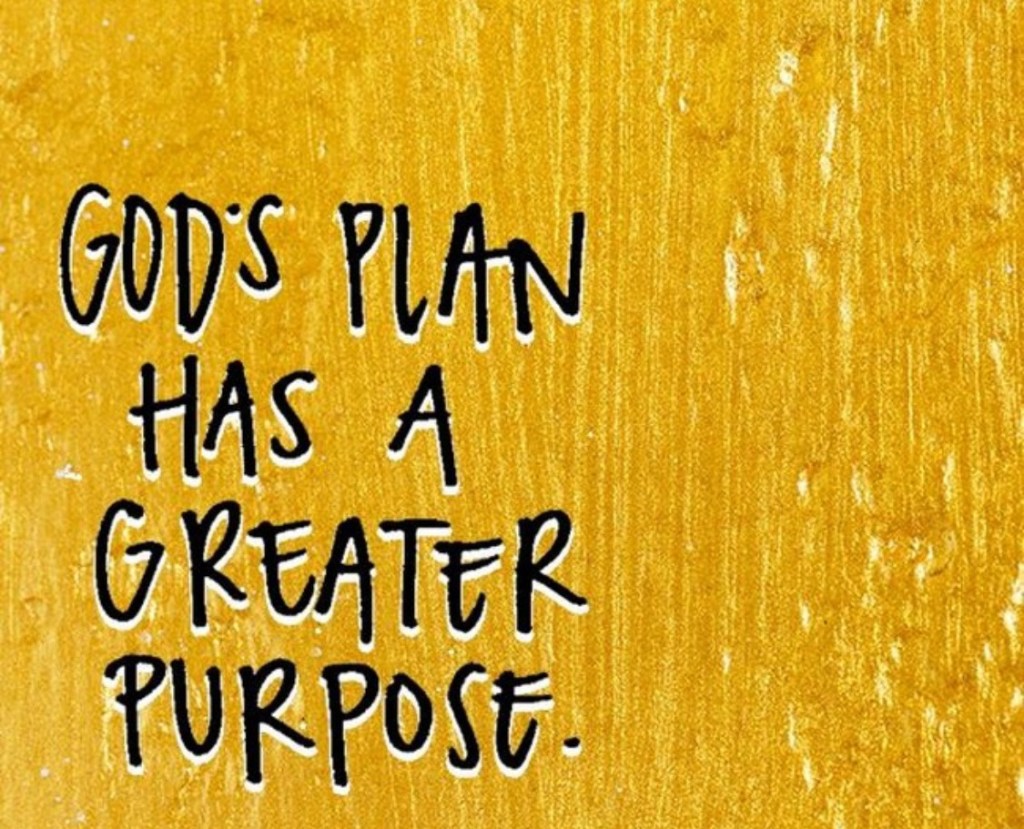 GOD'S PLAN
HAS A
GREATER
PURPOSE.